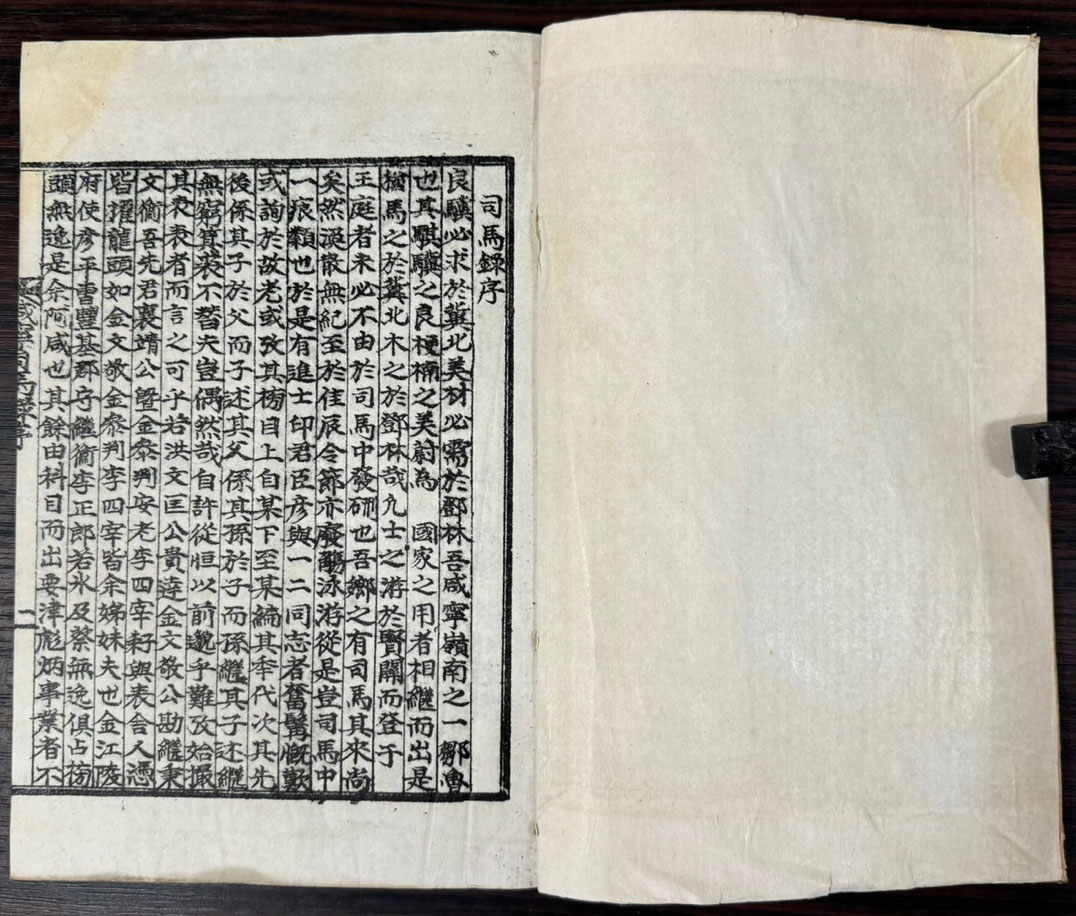 司馬錄序
良驥必求於冀北美材必需於鄧林吾咸寧嶺南之一鄒魯
也其騏驥之良梗楠之美蔚為 國家之用者相繼而出是
猶馬之於冀北木之於鄧林哉凡士之游於賢關而登于
王庭者未必不由於司馬中發硎也吾鄉之有司馬其來尚
矣然渙散無紀至於佳辰令節亦廢觴泳游從是豈司馬中
一痕纇也於是有進士印君臣彦與一二同志者奮髯慨歎
或詢於故老或攷其榜目上自某下至某編其年代次其先
後係其子於父而子述其父係其孫於子而孫繼其子述繼
無窮箕裘不替夫豈偶然哉自許從恒以前邈乎難攷始撮
其表表者而言之可乎若洪文匡公貴達金文敬公勘繼秉
文衡吾先君襄靖公曁金叅判安老李四宰耔與表舍人憑
皆擢龍頭如金文敬金叅判李四宰皆余娣妹夫也金江陵
府使彦平曺豐基郡守繼衡李正郎若氷及蔡無逸俱占榜
頭無逸是余阿咸也其餘由科目而出要津彪炳事業者不
咸寧司馬錄序
一